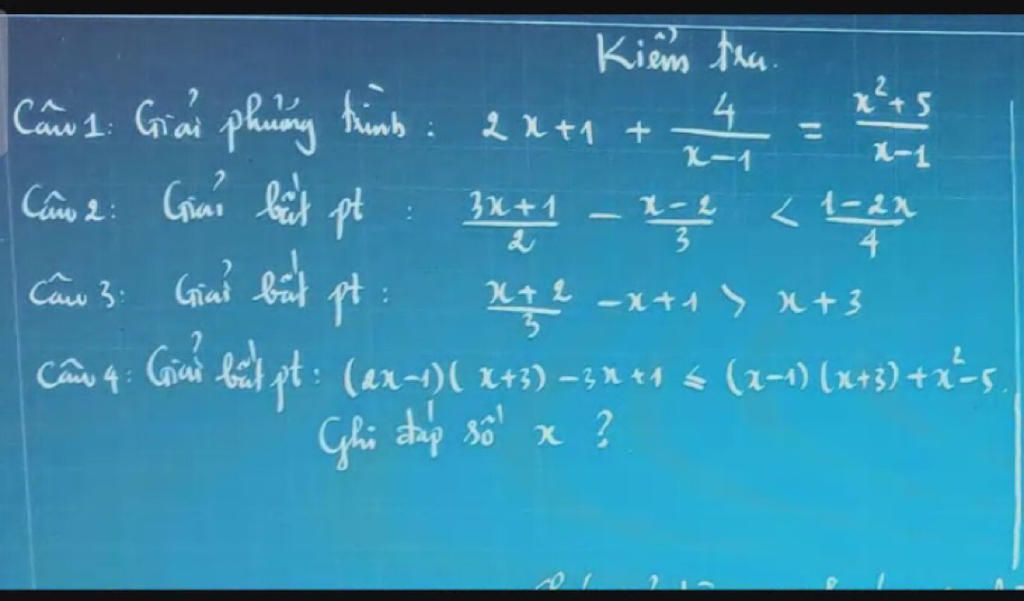 Kiểm tra.
Câu 1: Giải phương trình : 2x+1 + 4/(x-1) = (x²+5)/(x-1)
Câu 2: Giải bất pt : (3x+1)/2 - (x-2)/3 < (1-2x)/4
Câu 3: Giải bất pt : (x+2)/3 - x+1 > x+3
Câu 4: Giải bất pt : (2x-1)(x+3) - 3x+1 ≤ (x-1)(x+3) + x²-5.
Ghi đáp số x ?